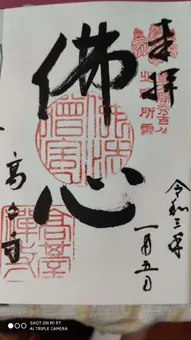 奉拝
令和三年
一月五日
佛心
佛法僧寶
高台寺
SHOT ON MI 9T
AI TRIPLE CAMERA